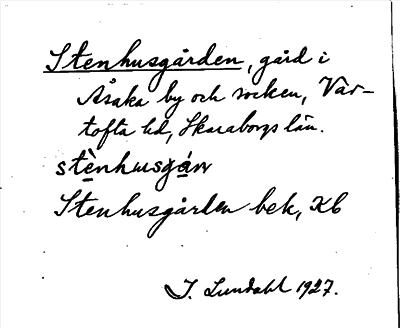 Stenhusgården, gård i
Åsaka by och socken, Var-
tofta hd, Skaraborgs län.
stènhusgán
Stenhusgården bek, Kb
I. Lundahl 1927.